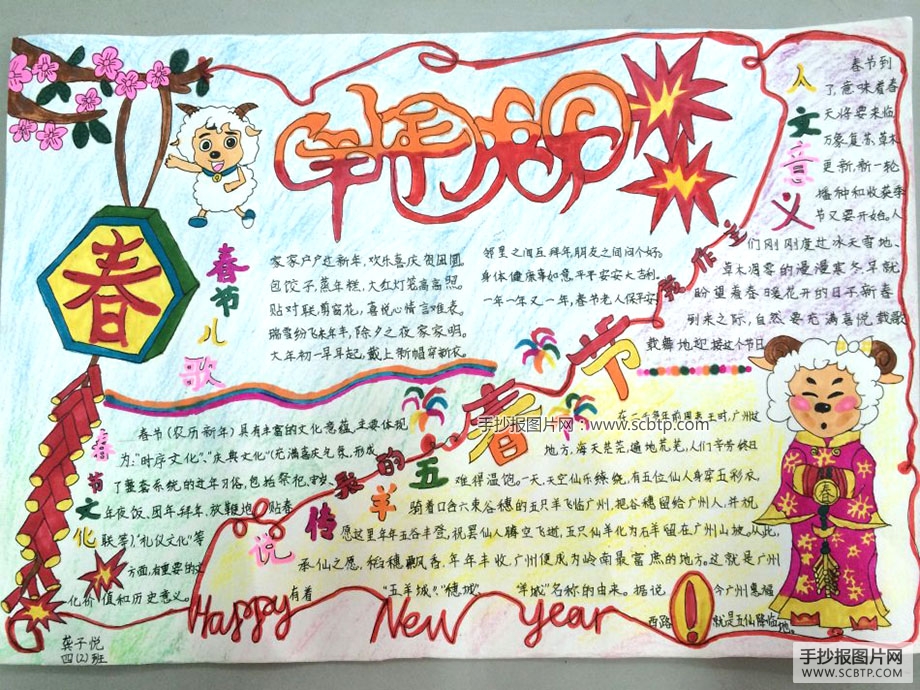 羊年春节
春
春节儿歌
家家户户过新年,欢乐喜庆贺团圆。
包饺子,蒸年糕,大红灯笼高高照。
贴对联,剪窗花,喜悦心情言难表。
瑞雪纷飞来年丰,除夕之夜家家明。
大年初一早早起,戴上新帽穿新衣。
邻里之间互拜年,朋友之间问个好。
身体健康事如意,平平安安大吉利。
一年一年又一年,春节老人保平安。
人文意义
春节到
了,意味着春
天将要来临
万象复苏,草木
更新,新一轮
播种和收获季
节又要开始。人
们刚刚度过冰天雪地、
草木凋零的漫漫寒冬,早就
盼望着春暖花开的日子,新春
到来之际,自然要充满喜悦载歌
载舞地迎接这个节日
春节
手抄报图片网 www.scbtp.com
手抄报图片网 www.scbtp.com
春节文化
春节(农历新年)具有丰富的文化意蕴,主要体现
为:“时序文化”、“庆典文化”(充满喜庆气氛,形成
了整套系统的过年习俗,包括祭祀,守岁、
年夜饭,团年,拜年,放鞭炮,贴春
联等),“礼仪文化”等
方面,有重要的文
化价值和历史意义。
五羊的传说
在二千多年前周夷王时,广州这
地方,海天茫茫,遍地荒芜,人们辛劳终日
难得温饱。一天,天空仙乐缭绕,有五位仙人身穿五彩衣,
骑着口含六束谷穗的五只羊飞临广州,把谷穗留给广州人,并祝
愿这里年年五谷丰登,祝罢仙人腾空飞逝,五只仙羊化为石羊留在广州山坡。从此,
承仙之愿,稻穗飘香,年年丰收,广州便成为岭南最富庶的地方。这就是广州
有着“五羊城”,“穗城”、“羊城”名称的由来。据说今广州惠福
西路就是五仙降临地。
春
Happy New year!
龚子悦
四(2)班
手抄报图片网
WWW.SCBTP.COM